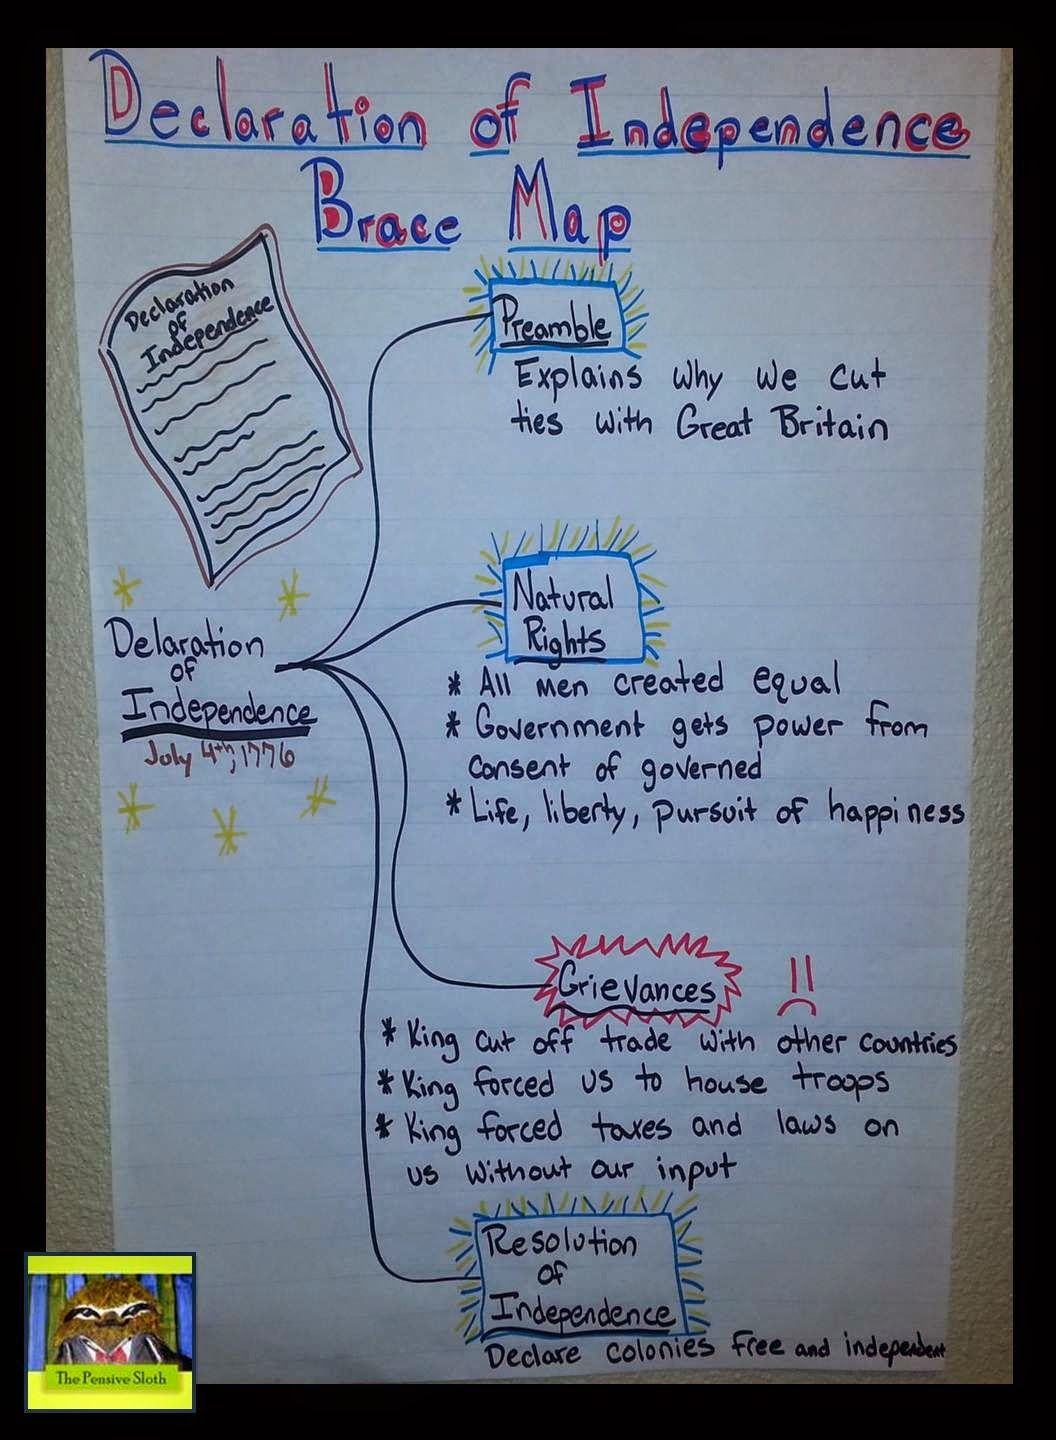 Declaration of Independence
Brace Map
Declaration
of
Independence
Preamble
Explains why we cut
ties with Great Britain
Natural
Rights
* All men created equal
* Government gets power from
consent of governed
* Life, liberty, pursuit of happiness
Delaration
of
Independence
July 4th, 1776
Grievances
* King cut off trade with other countries
* King forced us to house troops
* King forced taxes and laws on
us without our input
Resolution
of
Independence
Declare colonies free and independent
The Pensive Sloth